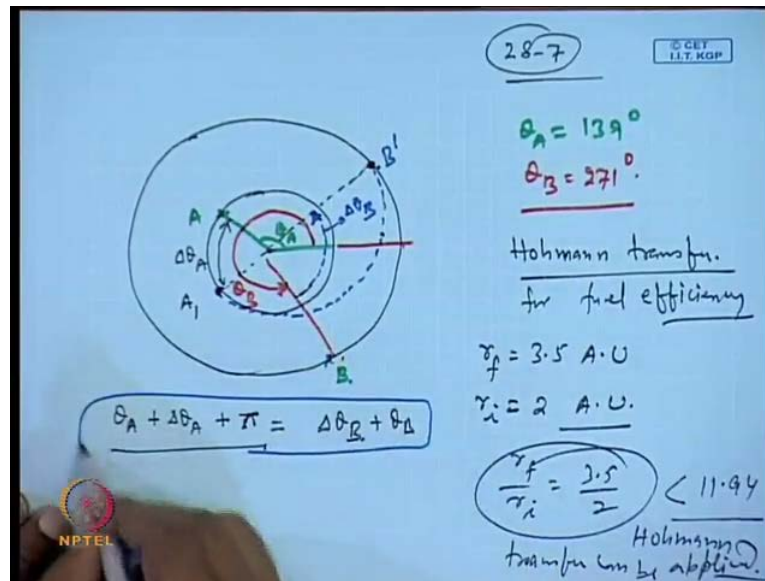 28-7
© CET
I.I.T. KGP
θA = 139°
θB = 271°.
Hohmann transfer.
for fuel efficiency
rf = 3.5 A.U
ri = 2 A.U.
rf/ri = 3.5/2 < 11.94
Hohmann
transfer can be applied.
B'
A
θA
ΔθB
ΔθA
θB
A1
B.
θA + ΔθA + π = ΔθB + θB
NPTEL